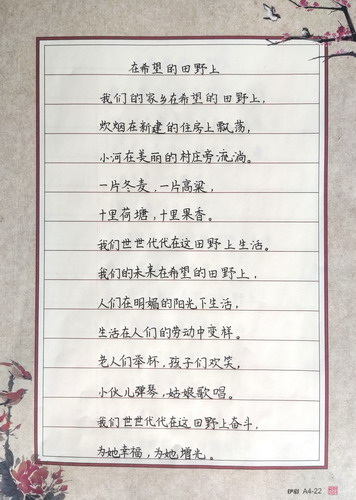 在希望的田野上
我们的家乡在希望的田野上，
炊烟在新建的住房上飘荡，
小河在美丽的村庄旁流淌。
一片冬麦，一片高粱，
十里荷塘，十里果香。
我们世世代代在这田野上生活。
我们的未来在希望的田野上，
人们在明媚的阳光下生活，
生活在人们的劳动中变样。
老人们举杯，孩子们欢笑，
小伙儿弹琴，姑娘歌唱。
我们世世代代在这田野上奋斗，
为她幸福，为她增光。
A4-22